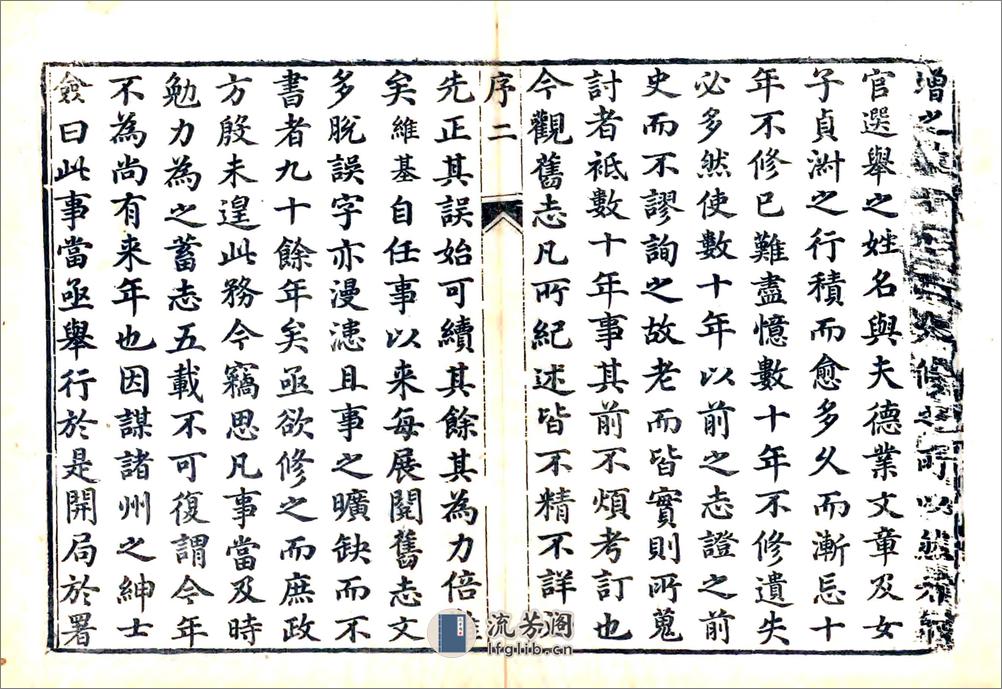 增之修之所以然
官選舉之姓名與夫德業文章及女
子貞淑之行積而愈多久而漸忘十
年不修已難盡憶數十年不修遺失
必多然使數十年以前之志證之前
史而不謬詢之故老而皆實則所蒐
討者祗數十年事其前不煩考訂也
今觀舊志凡所紀述皆不精不詳
序二
先正其誤始可續其餘其為力倍
矣維基自任事以来每展閱舊志文
多脫誤字亦漫漶且事之曠缺而不
書者九十餘年矣亟欲修之而庶政
方殷未遑此務今竊思凡事當及時
勉力為之蓄志五載不可復謂今年
不為尚有来年也因謀諸州之紳士
僉曰此事當亟舉行於是開局於署
流芳阁
lfglib.cn